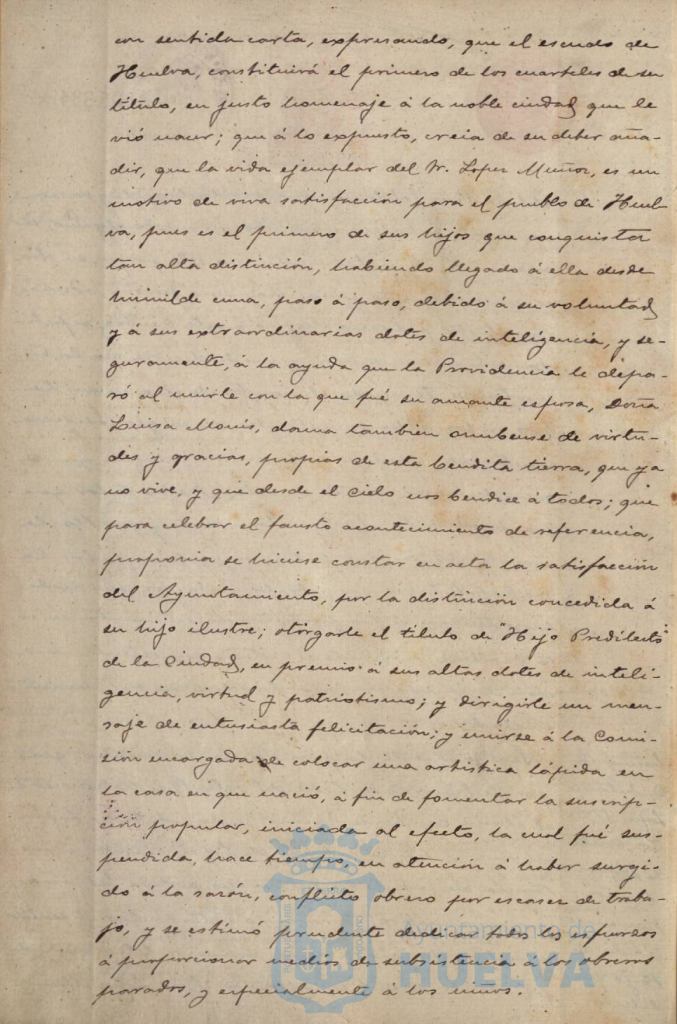 con sentida carta, expresando, que el escudo de
Huelva, constituirá el primero de los cuarteles de su
título, en justo homenaje á la noble ciudad que le
vió nacer; que á lo expuesto, creia de su deber aña-
dir, que la vida ejemplar del Sr. Lopez Muñoz, es un
motivo de viva satisfacción para el pueblo de Huel-
va, pues es el primero de sus hijos que conquista
tan alta distinción, habiendo llegado á ella desde
humilde cuna, paso á paso, debido á su voluntad
y á sus extraordinarias dotes de inteligencia, y se-
guramente, á la ayuda que la Providencia le depa-
ró al unirle con la que fué su amante esposa, Doña
Luisa Monis, dama tambien onubense de virtu-
des y gracias, propias de esta bendita tierra, que ya
no vive, y que desde el Cielo nos bendice á todos; que
para celebrar el fausto acontecimiento de referencia,
proponia se hiciese constar en acta la satisfacción
del Ayuntamiento, por la distinción concedida á
su hijo ilustre; otorgarle el título de "Hijo Predilecto"
de la Ciudad, en premio á sus altas dotes de inteli-
gencia, virtud y patriotismo; y dirigirle un men-
saje de entusiasta felicitación; y unirse á la Comi-
sión encargada de colocar una artística lápida en
la casa en que nació, á fin de fomentar la suscrip-
ción popular, iniciada al efecto, la cual fué sus-
pendida, hace tiempo, en atención á haber surgi-
do á la sazón, conflicto obrero por escasez de traba-
jo, y se estimó prudente dedicar todos los esfuerzos
á proporcionar medios de subsistencia á los obreros
parados, y especialmente á los niños.
Ayuntamiento de
HUELVA